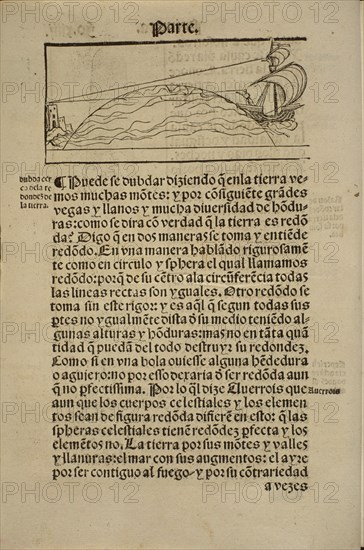 Parte.
dubda cer
ca dela re
dondez de
la tierra.
¶ Puede se dubdar diziendo q̃ enla tierra ve-
mos muchas mõtes: y por cõsiguiẽte grãdes
vegas y llanos y mucha diuersidad de hõdu-
ras: como se dira cõ verdad q̃ la tierra es redõ
da? Digo q̃ en dos maneras se toma y entiẽde
redõdo. En vna manera hablãdo rigurosamẽ
te como en circulo y sphera el qual llamamos
redõdo: porq̃ de su cẽtro ala circũferẽcia todas
las lineas rectas son yguales. Otro redõdo se
toma sin este rigor: y es aq̃l q̃ segun todas sus
ptes no ygualmẽte dista d̃ su medio teniẽdo al-
gunas alturas y hõduras: mas no en tãta quã
tidad q̃ pueda del todo destruyr su redondez.
Como si en vna bola ouiesse alguna hẽdedura
o agujero: no por esso dexaria d̃ ser redõda aun
q̃ no p̃fectissima. Por lo q̃l dize Auerrois que
Auerrois
aun que los cuerpos celestiales y los elemen
tos sean de figura redõda difierẽ en esto: q̃ las
spheras celestiales tienẽ redõdez p̃fecta y los
elemẽtos no. La tierra por sus mõtes y valles
y llanuras: el mar con sus augmentos: el ayre
por ser contiguo al fuego y por su cõtrariedad
a vezes